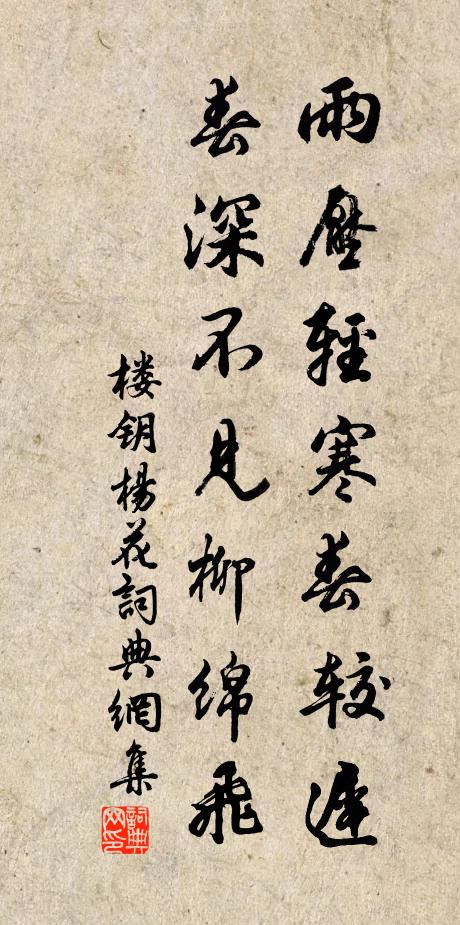 雨壓輕寒春較遲
春深不見柳綿飛
楼钥楊花詞典網集
詞典网印